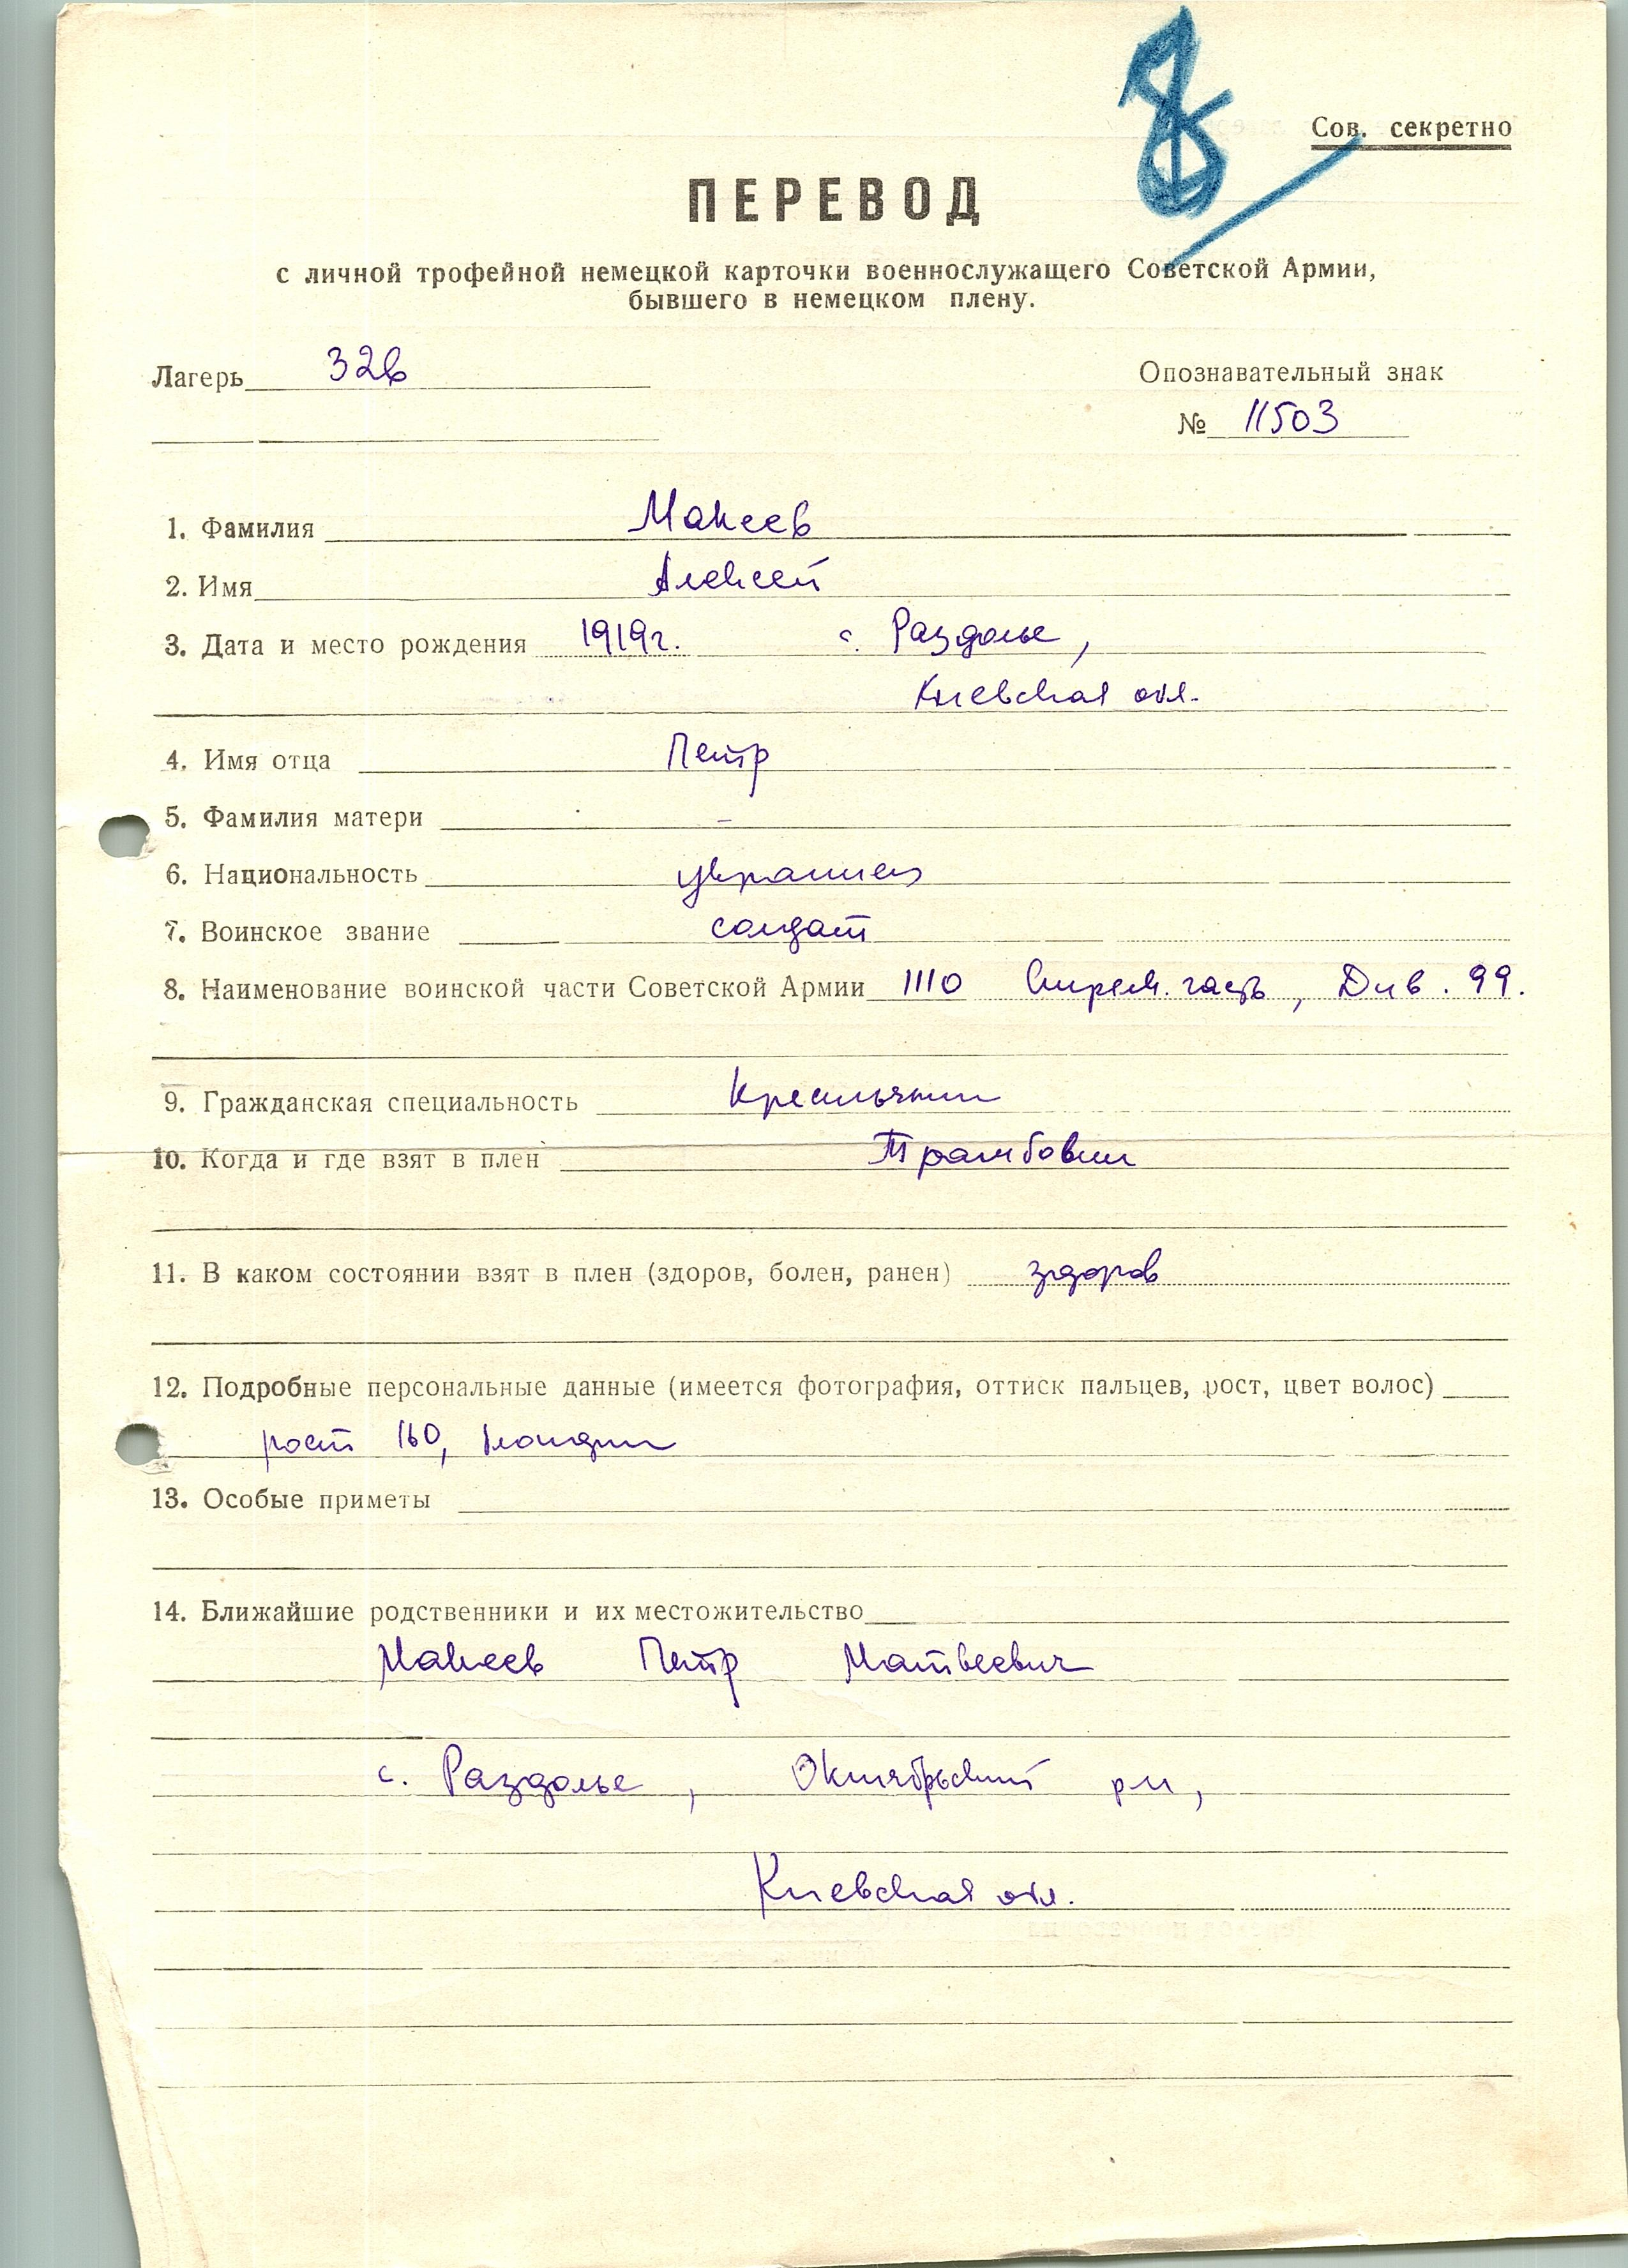 Сов. секретно
ПЕРЕВОД
с личной трофейной немецкой карточки военнослужащего Советской Армии,
бывшего в немецком плену.
Лагерь 326
Опознавательный знак
№ 11503
1. Фамилия Макеев
2. Имя Алексей
3. Дата и место рождения 1919г. с. Раздолье,
Киевская обл.
4. Имя отца Петр
5. Фамилия матери –
6. Национальность украинец
7. Воинское звание солдат
8. Наименование воинской части Советской Армии 1110 Стрелк. часть, Див. 99.
9. Гражданская специальность Крестьянин
10. Когда и где взят в плен
11. В каком состоянии взят в плен (здоров, болен, ранен) здоров
12. Подробные персональные данные (имеется фотография, оттиск пальцев, рост, цвет волос)
рост 160, блондин
13. Особые приметы
14. Ближайшие родственники и их местожительство
Макеев Петр Матвеевич
с. Раздолье, Октябрьский р-н,
Киевская обл.